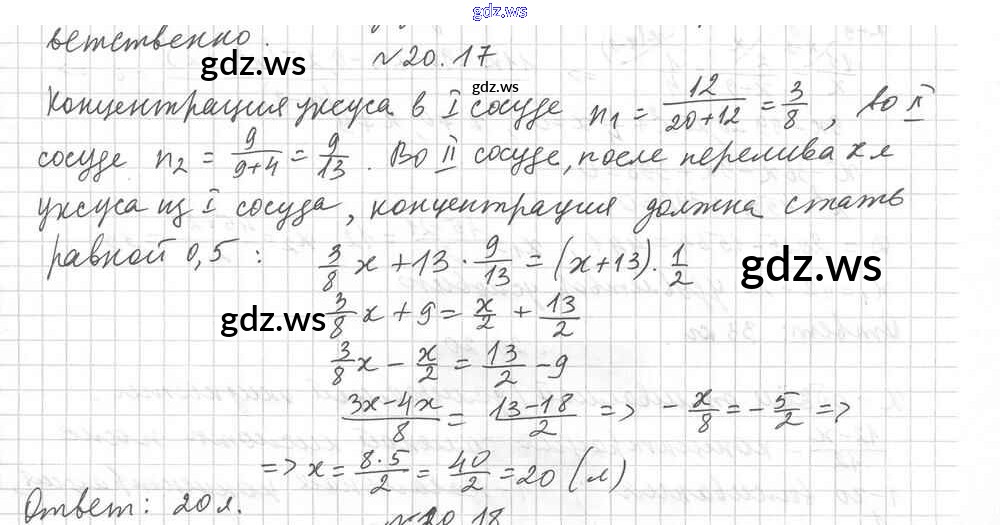 gdz.ws
ветственно.
№20.17
gdz.ws
gdz.ws
Концентрация уксуса в I сосуде n₁ = 12/(20+12) = 3/8, во II
сосуде n₂ = 9/(9+4) = 9/13. Во II сосуде, после перелива x л
уксуса из I сосуда, концентрация должна стать
равной 0,5 : 3/8 x + 13 · 9/13 = (x+13) · 1/2
gdz.ws
gdz.ws
3/8 x + 9 = x/2 + 13/2
3/8 x - x/2 = 13/2 - 9
(3x-4x)/8 = (13-18)/2 => - x/8 = - 5/2 =>
=> x = 8·5/2 = 40/2 = 20 (л)
Ответ: 20 л.
№20.18